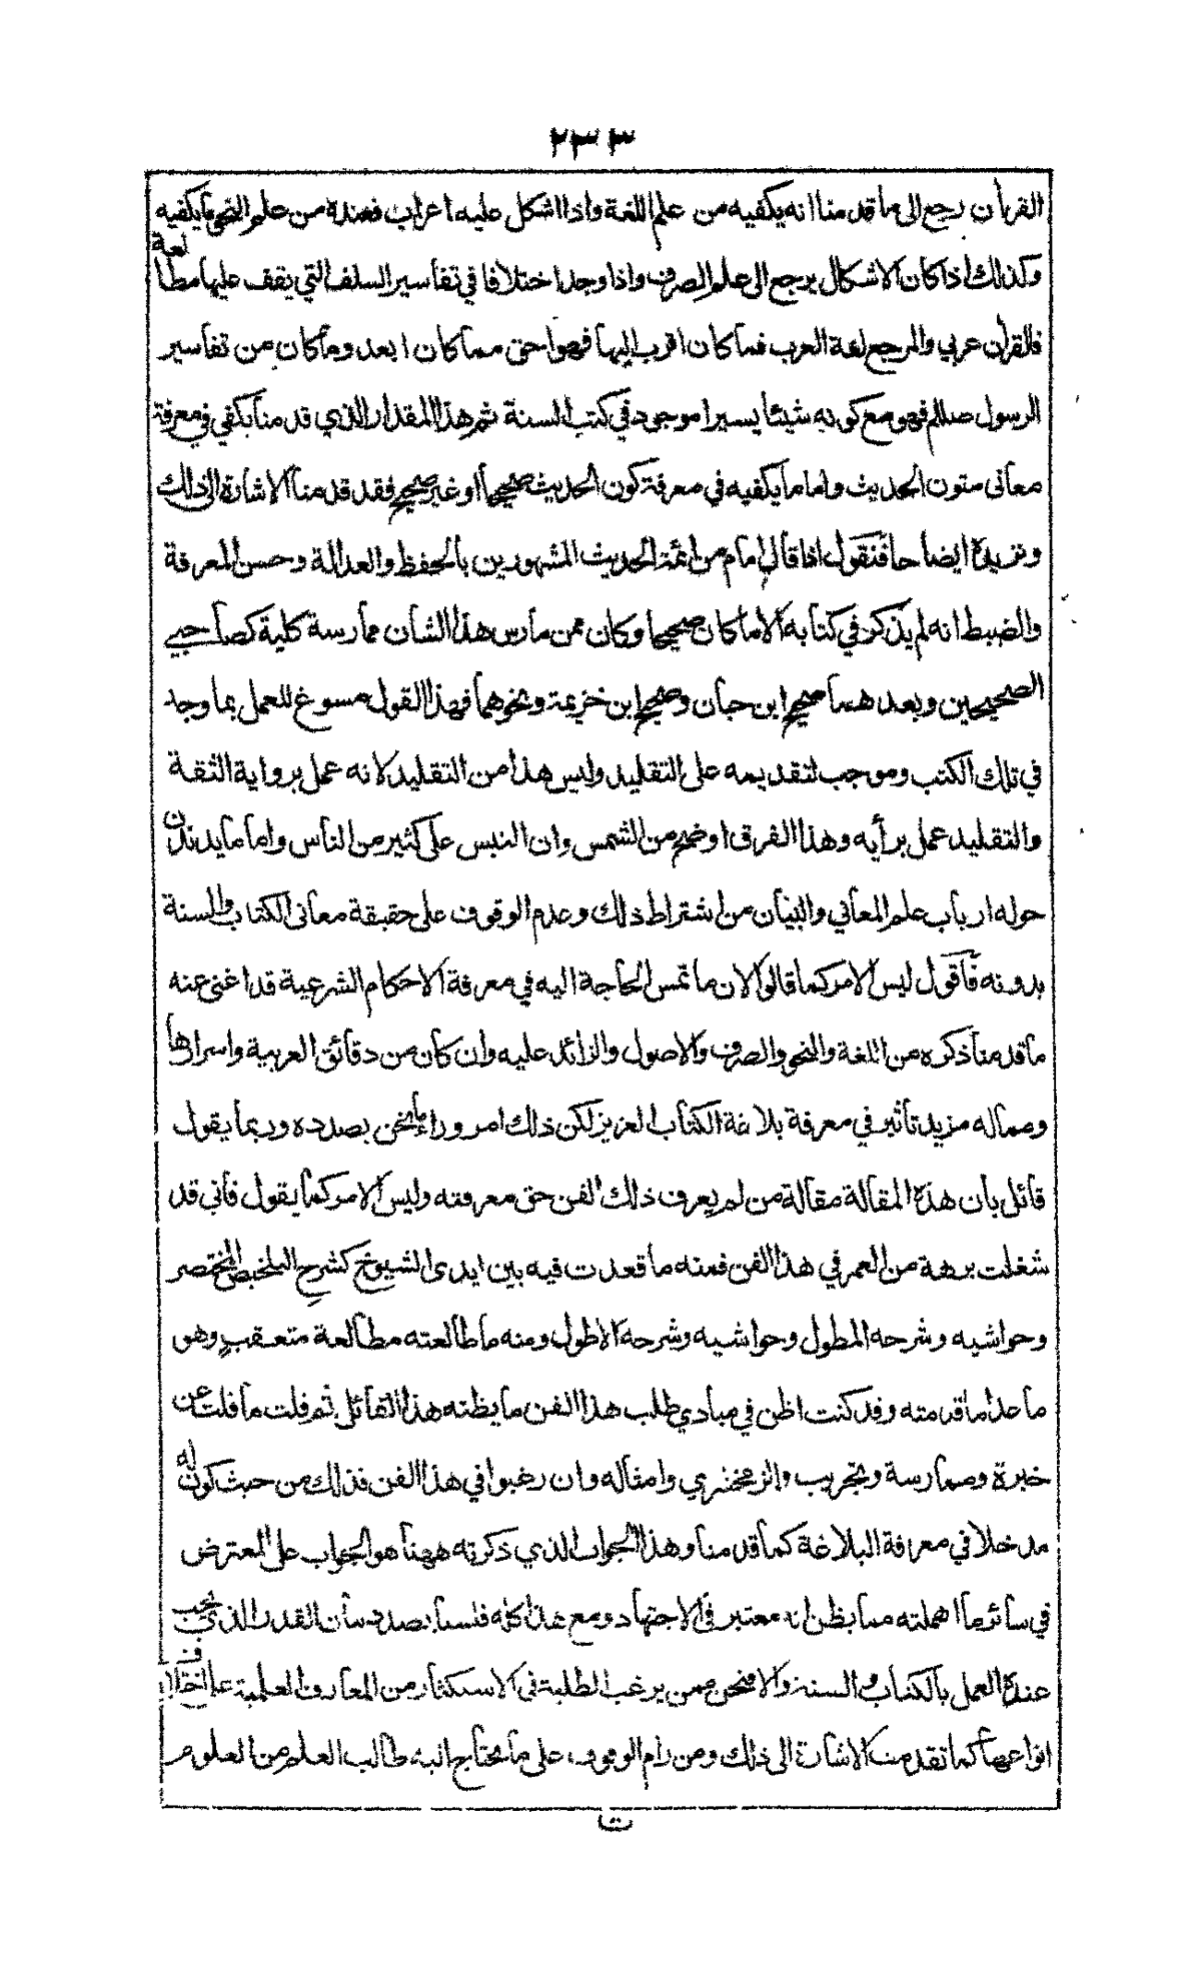 ٢٣٣
القرأن رجع الى ما قدمنا انه يكفيه من علم اللغة واذا اشكل عليه اعراب فعنده من علم النحو ما يكفيه
وكذلك اذا كان الاشكال يرجع الى علم الصرف واذا وجد اختلافا في تفاسير السلف التي يقف عليها مطالعة
فالقرأن عربي والمرجع لغة العرب فما كان اقرب اليها فهو احق مما كان ابعد وما كان من تفاسير
الرسول صللم فهو مع كونه شيئا يسيرا موجود في كتب السنة ثم هذا المقدار الذي قدمنا يكفي في معرفة
معانى متون الحديث واما ما يكفيه في معرفة كون الحديث صحيحا او غير صحيح فقد قدمنا الاشارة الى ذلك
ونزيده ايضاحا فنقول اذا قال امام من ائمة الحديث المشهورين بالحفظ والعدالة وحسن المعرفة
والضبط انه لم يذكر في كتابه الا ما كان صحيحا وكان ممن مارس هذا الشان ممارسة كلية كصاحبي
الصحيحين وبعدهما صحيح ابن حبان وصحيح ابن خزيمة ونحوهما فهذا القول مسوغ للعمل بما وجد
في تلك الكتب وموجب لتقديمه على التقليد وليس هذا من التقليد لانه عمل برواية الثقة
والتقليد عمل برأيه وهذا الفرق اوضح من الشمس وان التبس على كثير من الناس واما ما يدندن
حوله ارباب علم المعاني والبيان من اشتراط ذلك وعدم الوقوف على حقيقة معانى الكتاب والسنة
بدونه فاقول ليس الامر كما قالوا لان ما تمس الحاجة اليه في معرفة الاحكام الشرعية قد اغنى عنه
ما قدمنا ذكره من اللغة والنحو والصرف والاصول والزائد عليه وان كان من دقائق العربية واسرارها
ومما له مزيد تأثير في معرفة بلاغة الكتاب العزيز لكن ذلك امر وراء ما نحن بصدده وربما يقول
قائل بان هذه المقالة مقالة من لم يعرف ذلك الفن حق معرفته وليس الامر كما يقول فاني قد
شغلت برهة من العمر في هذا الفن فمنه ما قعدت فيه بين ايدى الشيوخ كشرح التلخيص المختصر
وحواشيه وشرحه المطول وحواشيه وشرحه الاطول ومنه ما طالعته مطالعة متعقب وهو
ما عدا ما قدمته وقد كنت اظن في مبادي طلب هذا الفن ما يظنه هذا القائل ثم قلت ما قلت عن
خبرة وممارسة وتجريب والزمخشري وامثاله وان رغبوا في هذا الفن فذلك من حيث كون له
مدخلا في معرفة البلاغة كما قدمنا وهذا الجواب الذي ذكرته ههنا هو الجواب على المعترض
في سائر ما اهملته مما يظن انه معتبر في الاجتهاد ومع هذا كله فلسنا بصدد بيان القدر الذي يجب
عنده العمل بالكتاب والسنة والا فنحن ممن يرغب الطلبة في الاستكثار من المعارف العلمية على اختلاف
انواعها كما تقدمت الاشارة الى ذلك ومن رام الوقوف على ما يحتاج اليه طالب العلم من العلوم